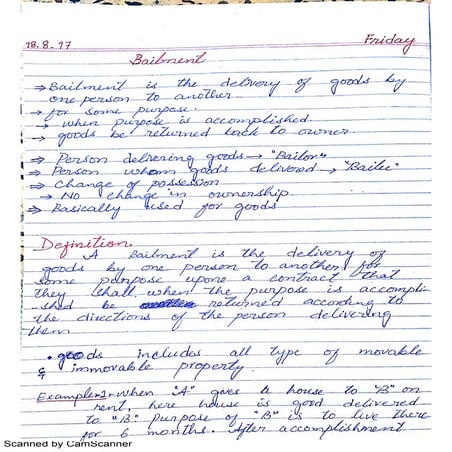 18.8.17 Friday
Bailment
→ Bailment is the delivery of goods by
one person to another
→ for some purpose.
→ when purpose is accomplished.
→ goods be returned back to owner.
→ Person delivering goods → "Bailor"
→ Person whom goods delivered → "Bailee"
→ Change of possession
→ No change in ownership
→ Basically used for goods
Definition
A Bailment is the delivery of
goods by one person to another for
some purpose upon a contract that
they shall when the purpose is accompli-
shed be returned according to
the directions of the person delivering
them.
• goods includes all type of movable
& immovable property.
Example:- When "A" gives a house to "B" on
rent, here house is good delivered
to "B". Purpose of "B" is to live there
for 6 months. After accomplishment
Scanned by CamScanner